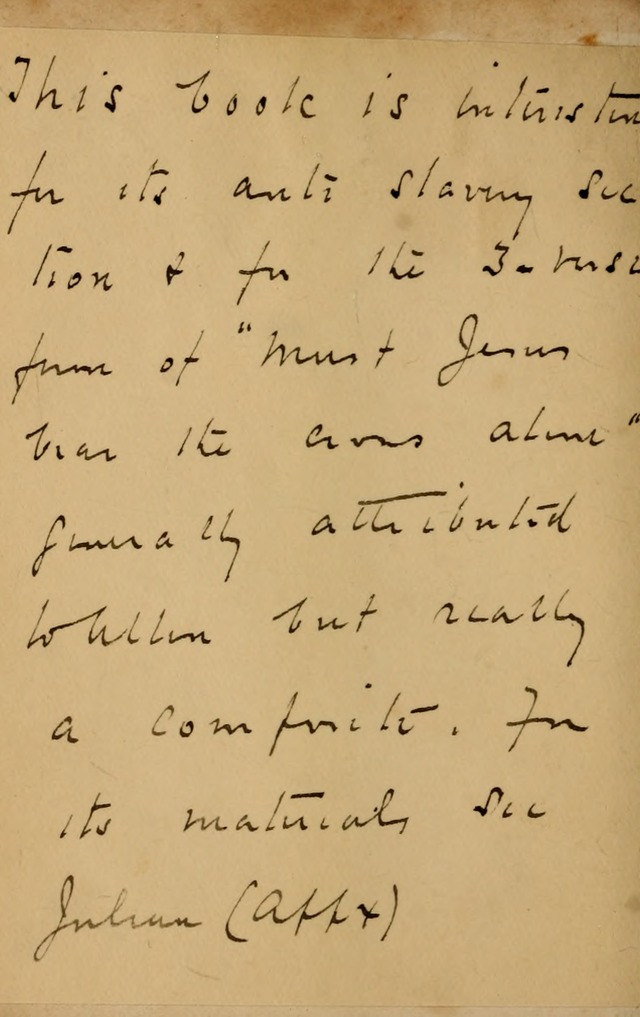 This book is interestin
for its anti slavery sec
tion & for the 3-verse
form of "Must Jesus
bear the cross alone"
generally attributed
to Allen but really
a composite. For
its materials see
Julian (Appx)